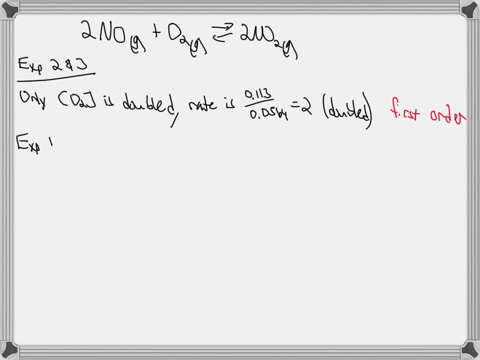 2NO(g) + O₂(g) ⇌ 2NO₂(g)
Exp 2 & 3
Only [O₂] is doubled, rate is 0.113/0.0564 = 2 (doubled) first order
Exp 1